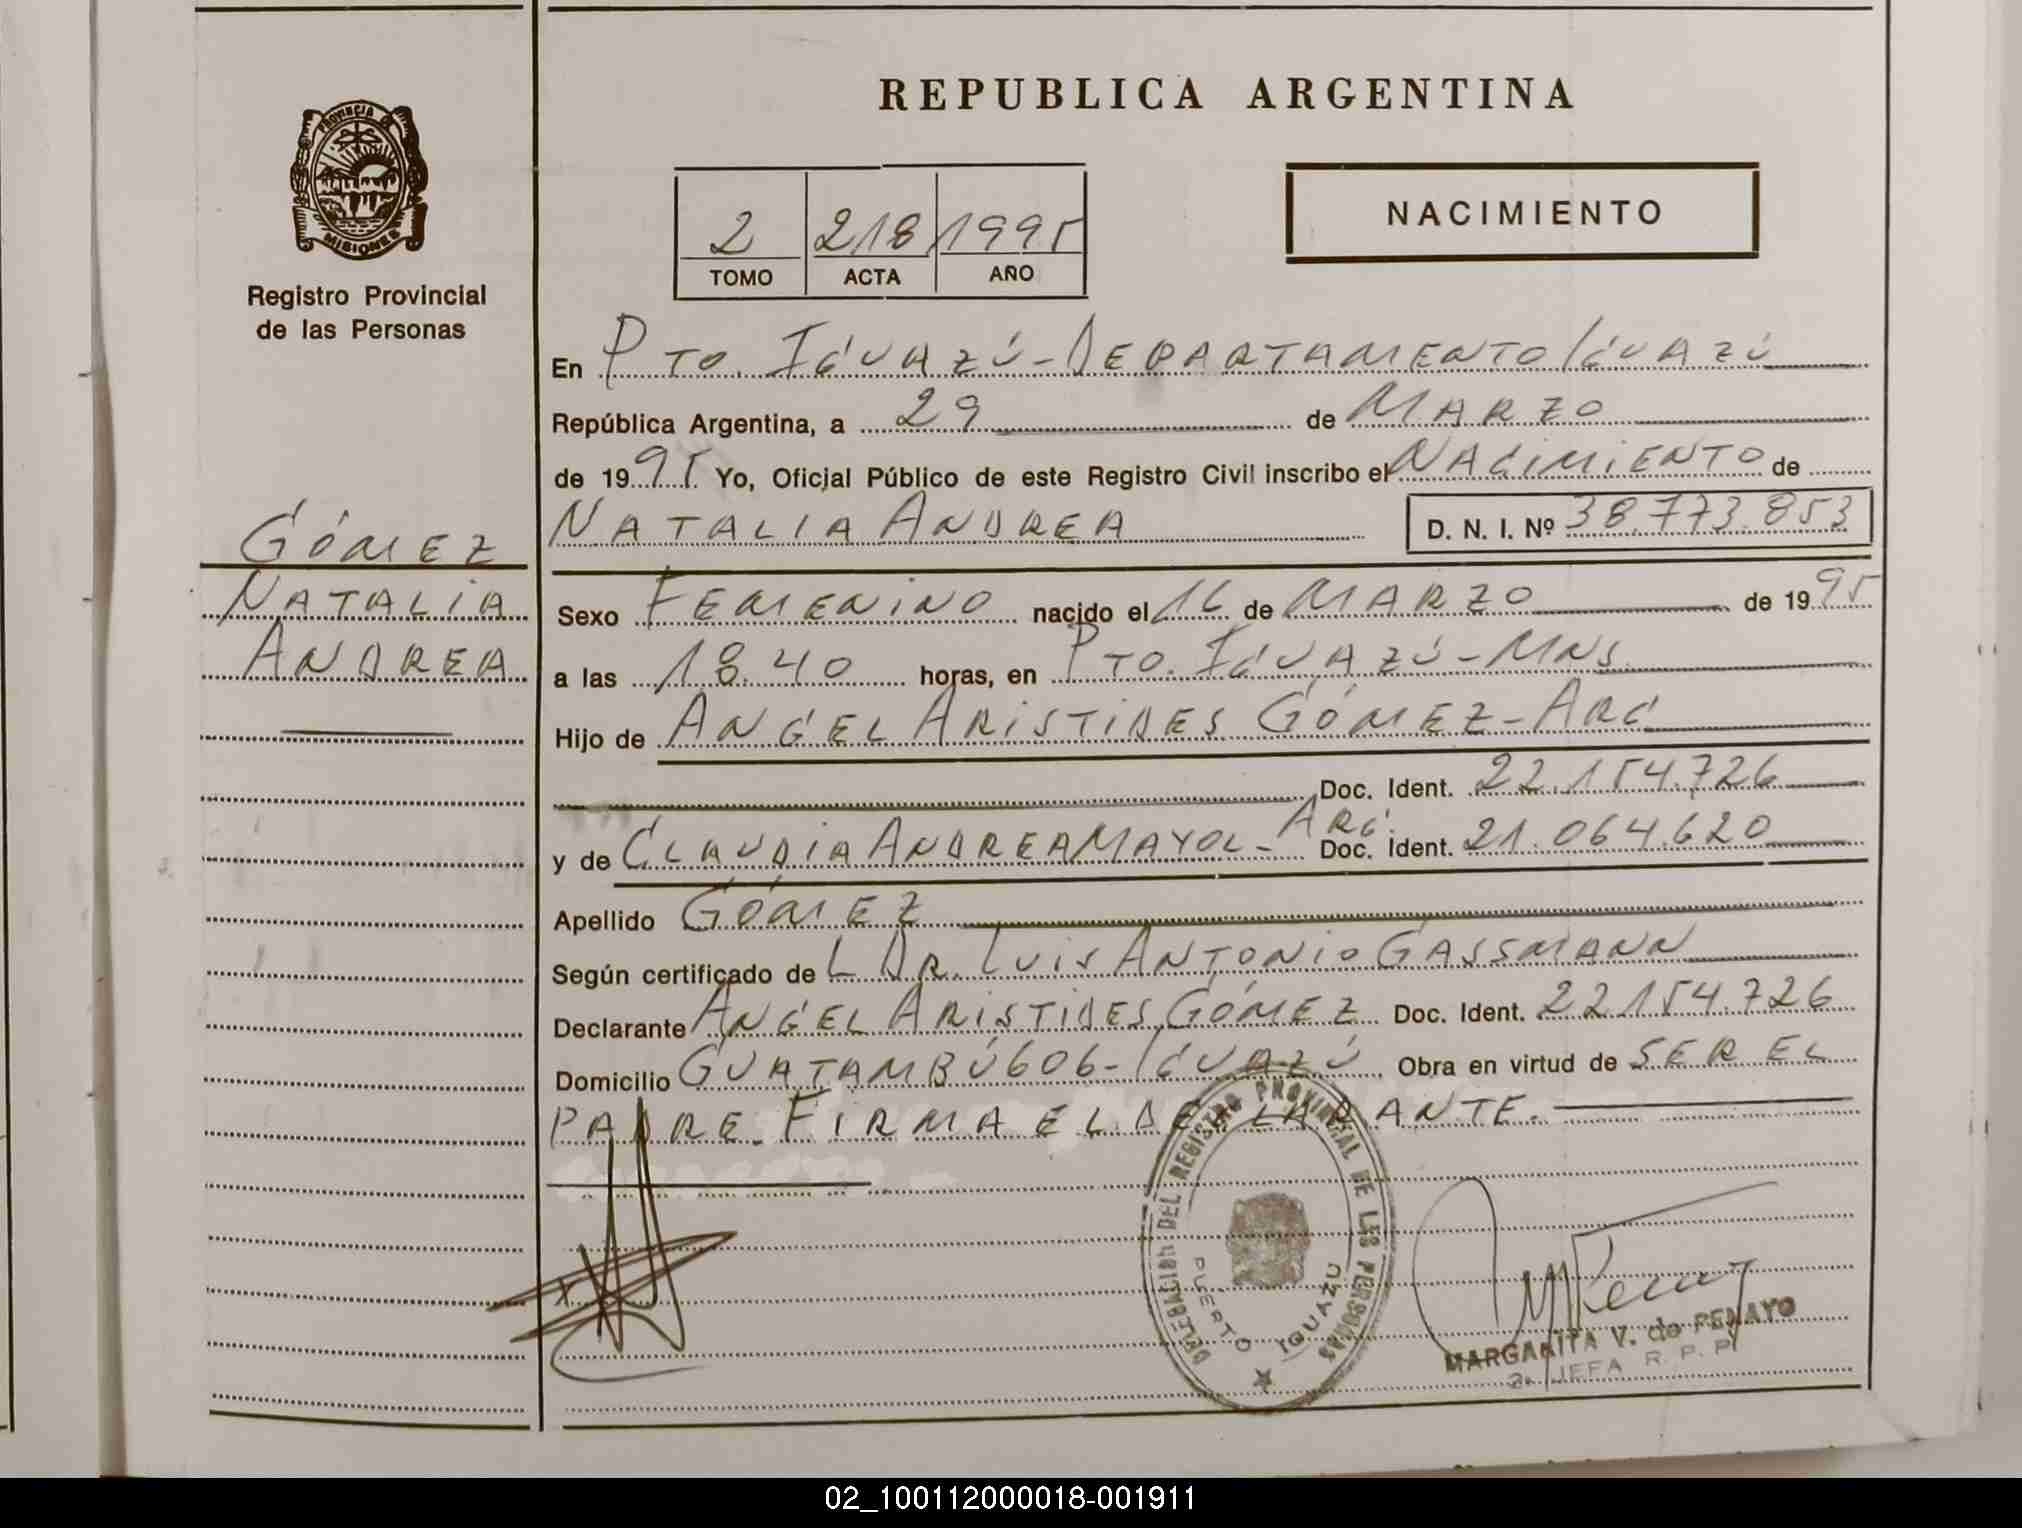 REPUBLICA ARGENTINA
PROVINCIA DE
MISIONES
Registro Provincial
de las Personas
2 218 1995
TOMO ACTA AÑO
NACIMIENTO
En Pto. Iguazú - Departamento Iguazú
República Argentina, a 29 de Marzo
de 1995 Yo, Oficial Público de este Registro Civil inscribo el Nacimiento de
Gómez
Natalia
Andrea
Natalia Andrea D. N. I. Nº 38.773.853
Sexo Femenino nacido el 16 de Marzo de 1995
a las 18.40 horas, en Pto. Iguazú - Mns.
Hijo de Angel Aristides Gómez - Arg
Doc. Ident. 22.154.726
y de Claudia Andrea Mayol - Arg. Doc. Ident. 21.064.620
Apellido Gómez
Según certificado de L Dr. Luis Antonio Gassmann
Declarante Angel Aristides Gómez Doc. Ident. 22.154.726
Domicilio Guatambú 606 - Iguazú Obra en virtud de ser el
padre. Firma el declarante.
DELEGACION DEL REGISTRO PROVINCIAL DE LES PERSONAS
PUERTO IGUAZU
MARGARITA V. de PENAYO
JEFA R. P. P.
02_100112000018-001911